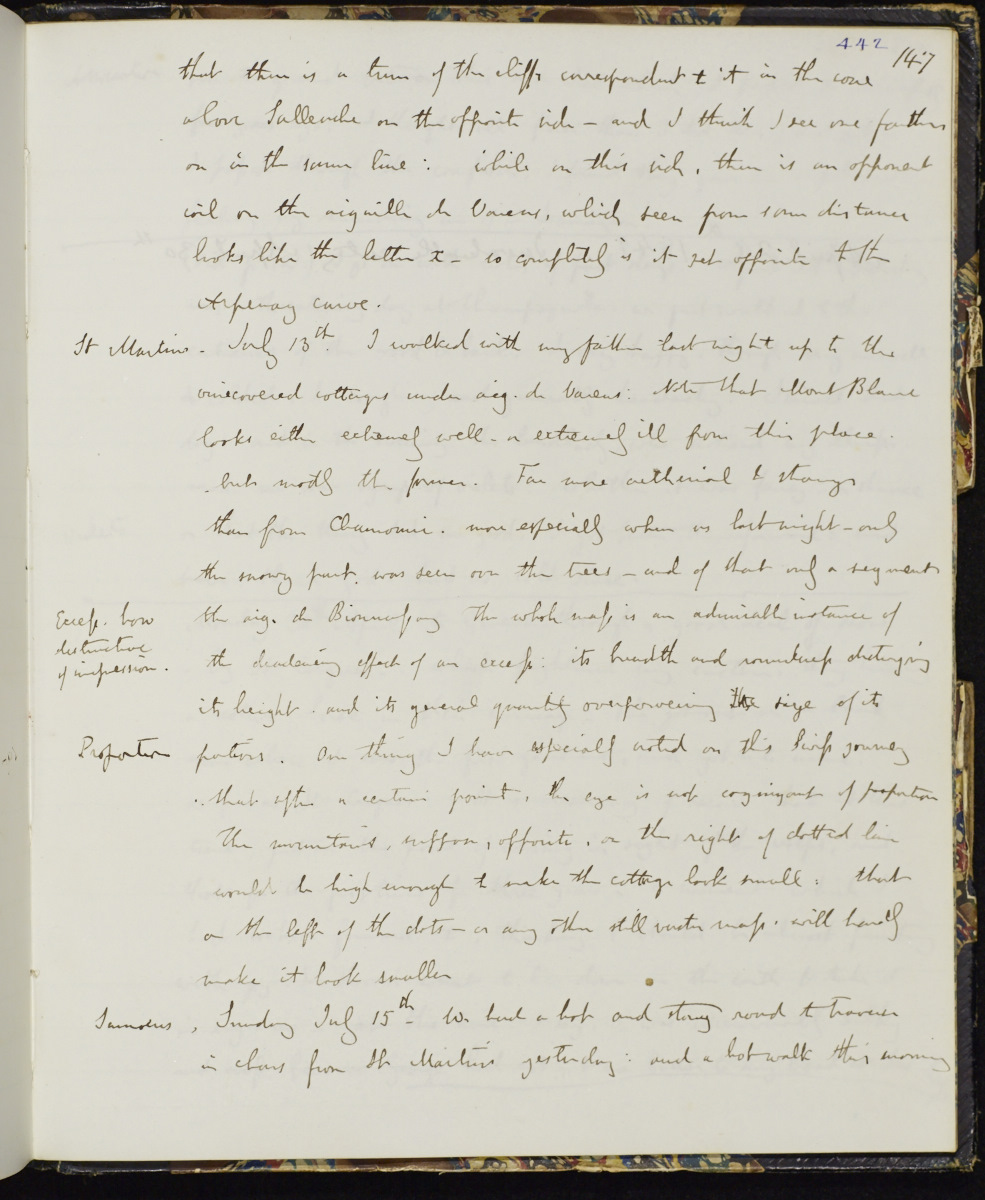 442 147
that there is a turn of the cliffs correspondent to it in the cove
above Sallenche on the opposite side – and I think I see one farther
on in the same line: while on this side, there is an opponent
coil on the aiguille de Varens, which seen from some distance
looks like the letter x – so completely is it set opposite to the
Arpenaz curve.
St Martins – July 13th. I walked with my father last night up to the
vinecovered cottages under aig. de Varens: Note that Mont Blanc
looks either extremely well – or extremely ill from this place.
but mostly the former. Far more aetherial & strange
than from Chamouni. more especially when as last night – only
the snowy part, was seen over the trees – and of that only a segment
Excess. how
destructive
of impression.
the aig. de Bionnassay The whole mass is an admirable instance of
the deadening effect of an excess: its breadth and roundness destroying
its height. and its general quantity overpowering the size of its
Proportion portions. One thing I have especially noted on this Swiss journey
. that after a certain point, the eye is not cognizant of proportion
The mountains, suppose, opposite, on the right of dotted line
would be high enough to make the cottage look small: that
on the left of the dots – or any other still vaster mass. will hardly
make it look smaller
Samoens, Sunday July 15th – We had a hot and stony road to traverse
in chars from St Martins yesterday: and a hot walk this morning